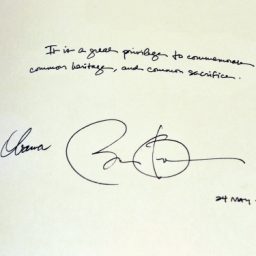 It is a great privilege to commemorate
common heritage, and common sacrifice.
Obama
24 MAY